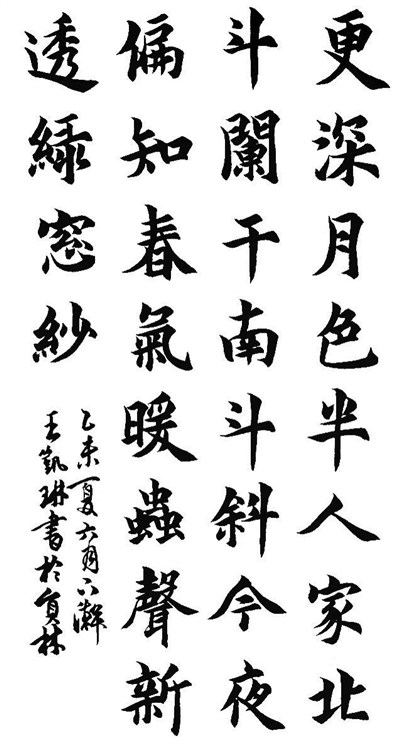 更深月色半人家北
斗闌干南斗斜今夜
偏知春氣暖蟲聲新
透綠窓紗
乙未夏六月下澣
王凱琳書於員林